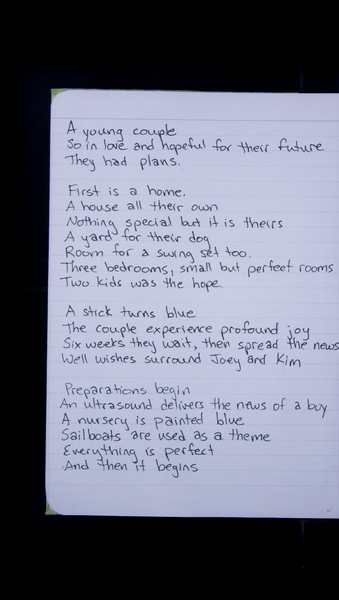 A young couple
So in love and hopeful for their future
They had plans.
First is a home.
A house all their own
Nothing special but it is theirs
A yard for their dog
Room for a swing set too.
Three bedrooms, small but perfect rooms
Two kids was the hope.
A stick turns blue
The couple experience profound joy
Six weeks they wait, then spread the news
Well wishes surround Joey and Kim
Preparations begin
An ultrasound delivers the news of a boy
A nursery is painted blue
Sailboats are used as a theme
Everything is perfect
And then it begins